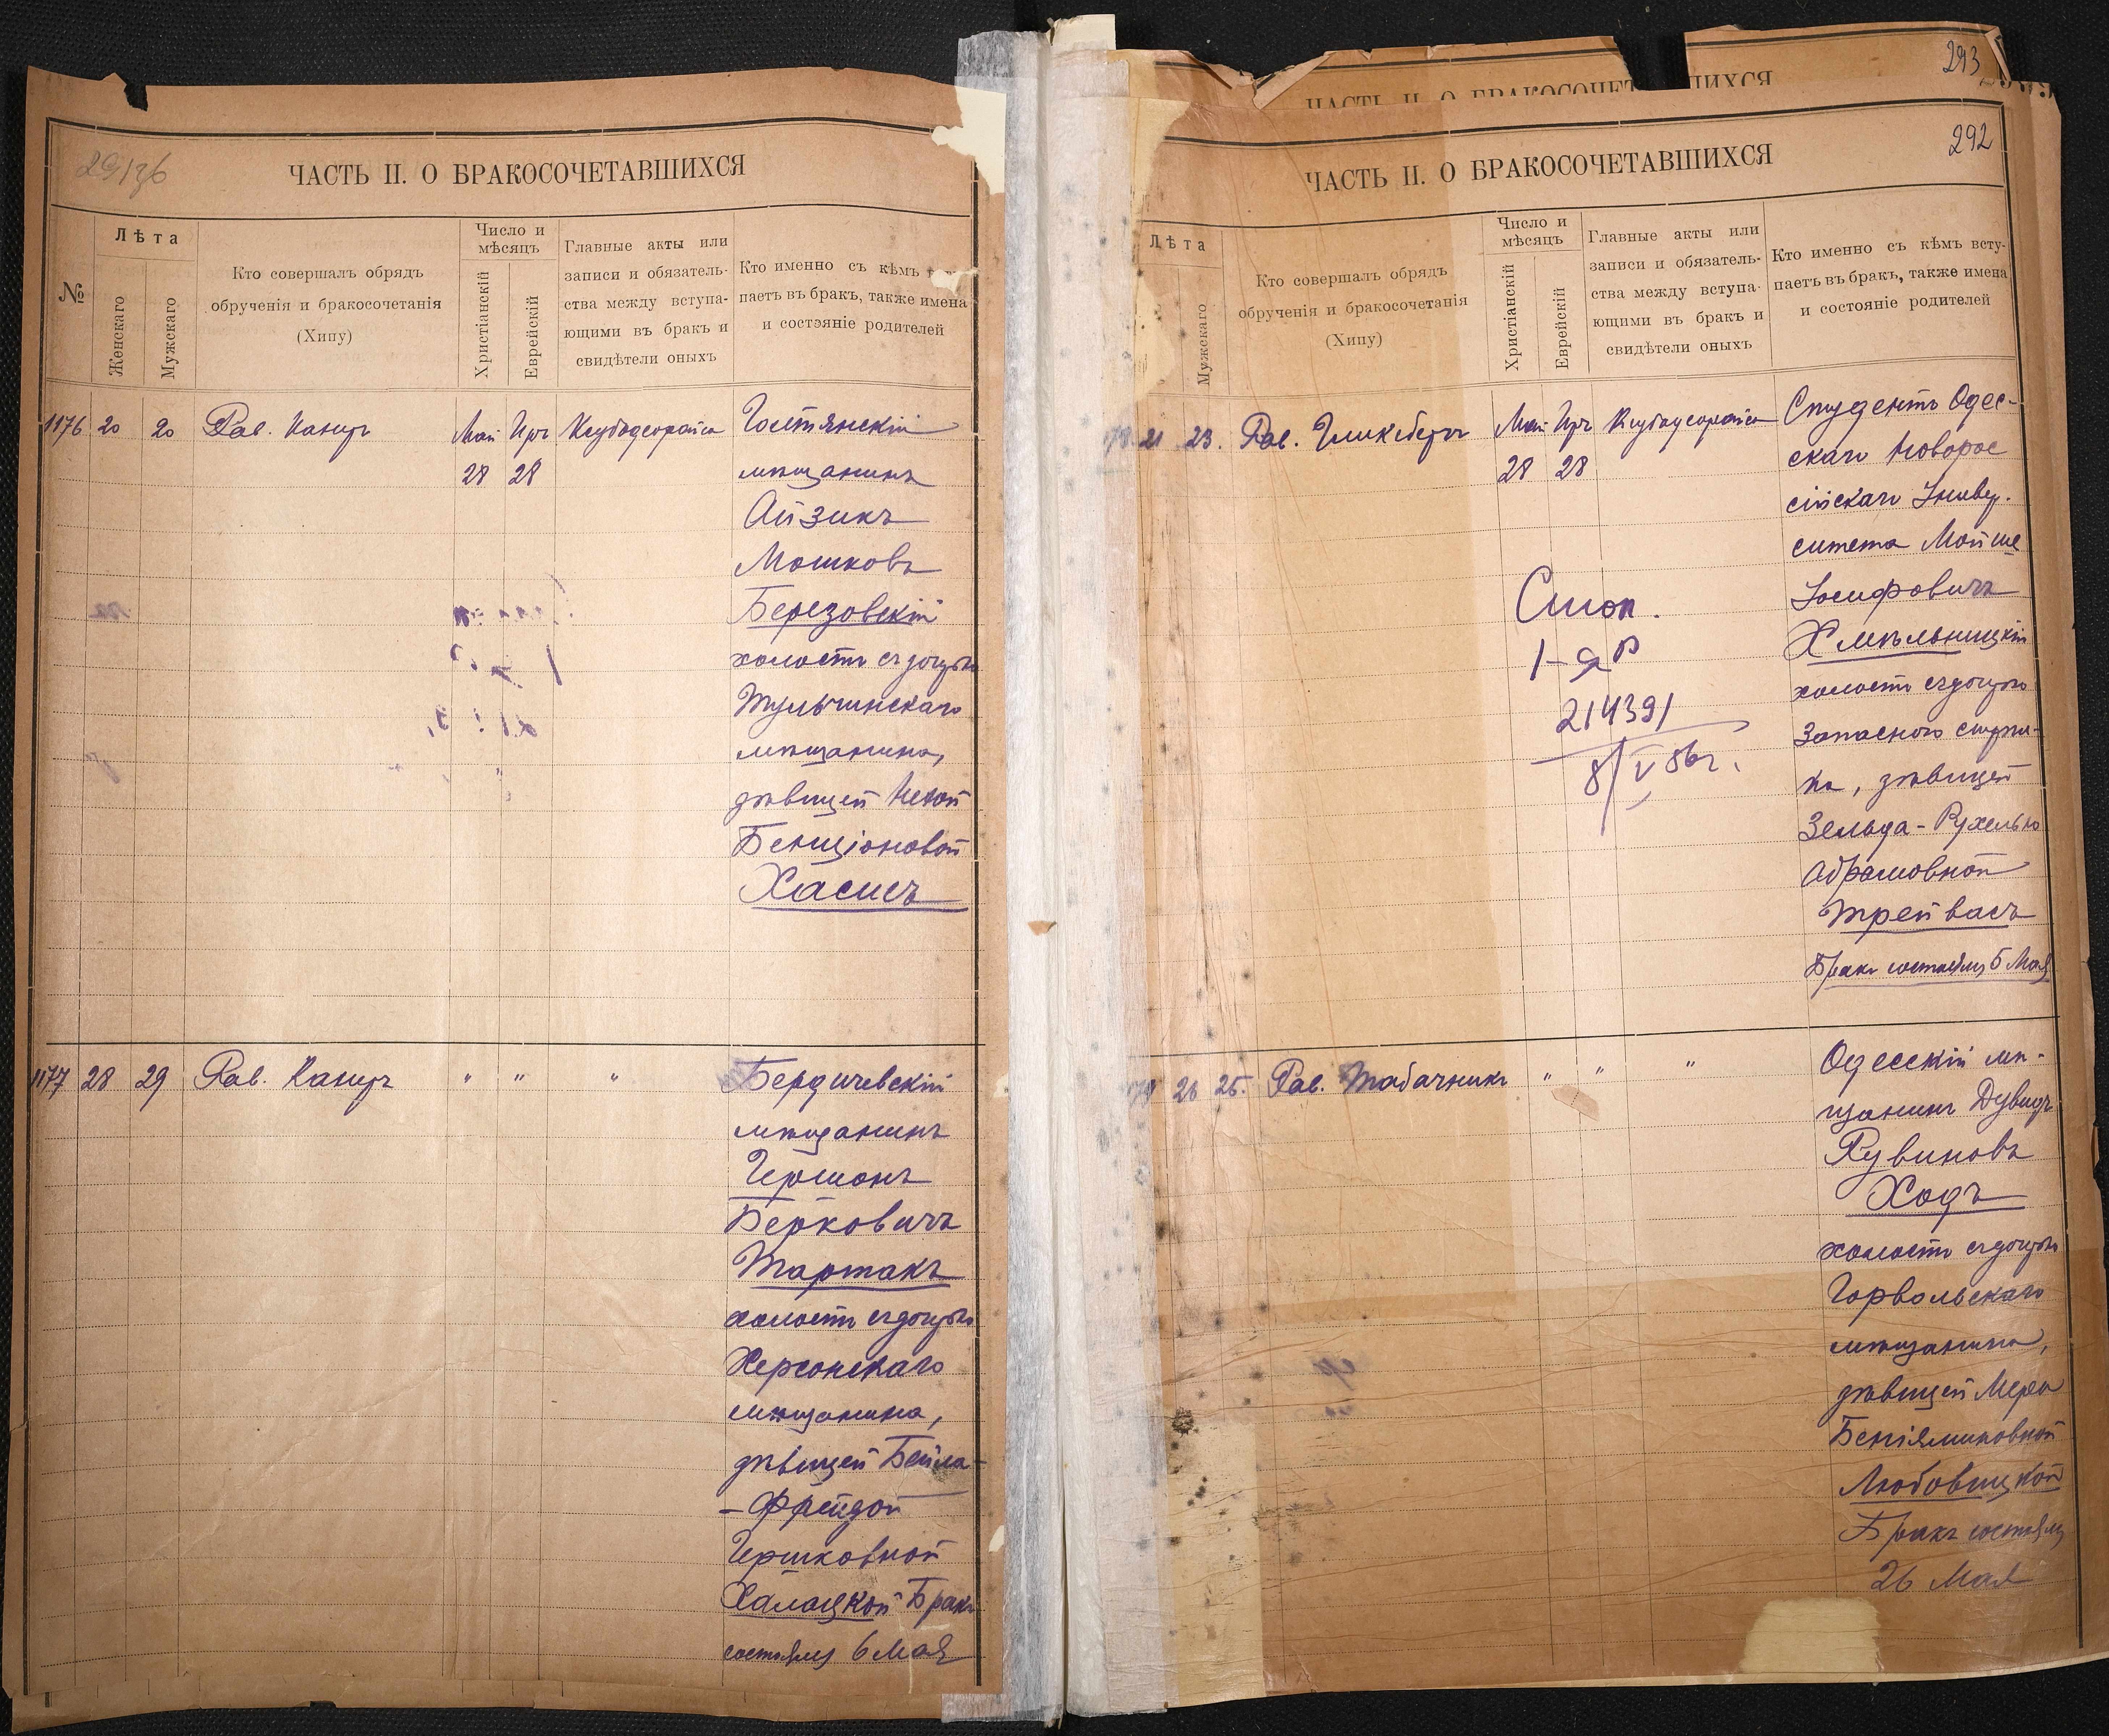 29136
ЧАСТЬ II. О БРАКОСОЧЕТАВШИХСЯ
№
Лѣта
Женскаго
Мужскаго
Кто совершалъ обрядъ
обрученія и бракосочетанія
(Хипу)
Число и
мѣсяцъ
Христіанскій
Еврейскій
Главные акты или
записи и обязатель-
ства между вступа-
ющими въ бракъ и
свидѣтели оныхъ
Кто именно съ кѣмъ
паетъ въ бракъ, также имена
и состояніе родителей
1176 20 20 Рав. Май
28 28
мѣщанинъ
Айзикъ
Мошковъ
Березовскій
холостъ съ дочерью
Тульчинскаго
мѣщанина,
дѣвицей
Бенціоновой
Хасисъ
1177 28 29 Рав. " " "
Бердичевскій
мѣщанинъ
Гершонъ
Берковичъ
Тартакъ
холостъ съ дочерью
Херсонскаго
мѣщанина,
дѣвицей Бейла-
-Фрейдой
Гершковной
Халацкой Бракъ
состоялся 6 Мая
293
ЧАСТЬ II. О БРАКОСОЧЕТАВШИХСЯ
292
ЧАСТЬ II. О БРАКОСОЧЕТАВШИХСЯ
Лѣта
Мужскаго
Кто совершалъ обрядъ
обрученія и бракосочетанія
(Хипу)
Число и
мѣсяцъ
Христіанскій
Еврейскій
Главные акты или
записи и обязатель-
ства между вступа-
ющими въ бракъ и
свидѣтели оныхъ
Кто именно съ кѣмъ всту-
паетъ въ бракъ, также имена
и состояніе родителей
21 23. Рав. Гликсбергъ Май Студентъ Одес-
28 28 скаго Новорос
сійскаго Универ.
ситета Мойше
Іосифовичъ
Хмѣльницкій
холостъ съ дочерью
Запаснаго
ка, дѣвицей
Зельда-Рухелью
Абрамовной
Трейвасъ
Бракъ состоялся 5 Мая
214391
8/V 56г.
26 25. Рав. Табачникъ " " "
Одесскій мѣ-
щанинъ Дувидъ
Рувиновъ
Ходъ
холостъ съ дочерью
Горвольскаго
мѣщанина,
дѣвицей Мера
Беніяминовной
Любовицкой
Бракъ состоялся
26 Мая